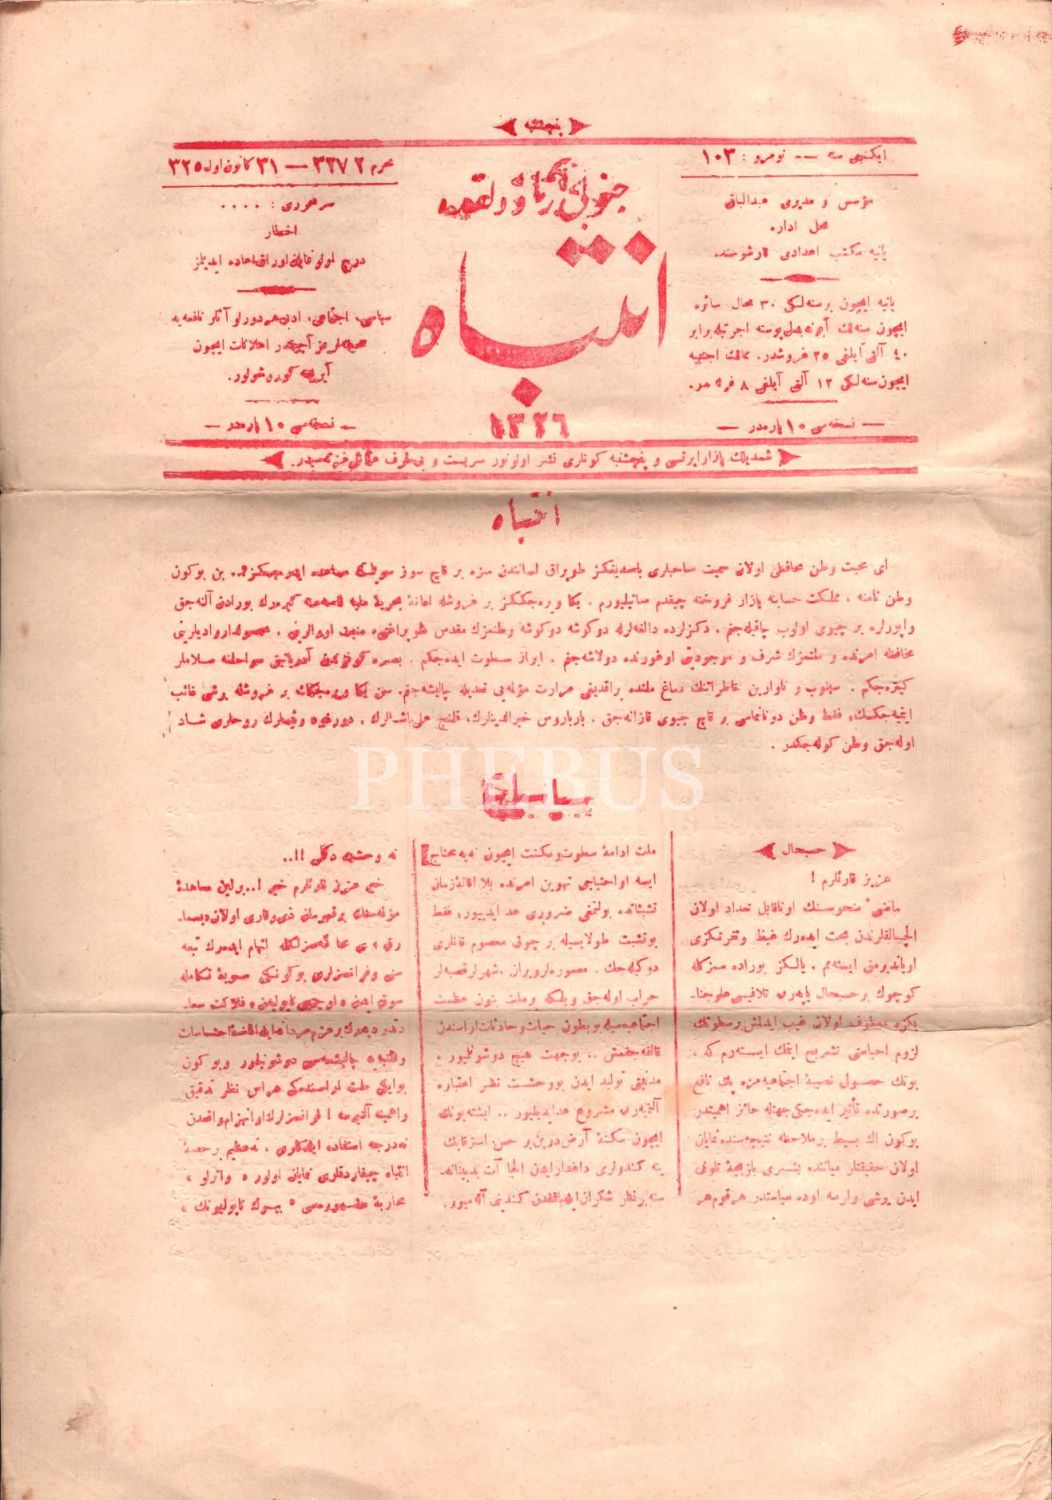 پنجشنبه
ایکنجی سنه — نومرو : ۱۰۳
مؤسس و مدیری عبدالباقی
محل اداره
یانیه مکتب اعدادی قارشوسنده
یانیه ایچون برسنه لکی ۳۰ محال سائره
ایچون سنه لك آبونه بدلی پوسته اجرتیله برابر
۴۰ آلتی آیلغی ۲۵ غروشدر. ممالك اجنبیه
ایچون سنه لکی ۱۲ آلتی آیلغی ۸ فرانقدر.
— نسخه سی ۱۰ پاره در —
جنوبی
انتباه
۱۳۲۶
محرم ۲ ۳۲۷ — ۳۱ کانون اول ۳۲۵
سر محرری : ....
اخطار
درج اولونمایان اوراق اعاده ایدیلمز
سیاسی، اجتماعی، ادبی هر دورلو آثار نافعه یه
صحیفه لرمز آچیقدر اعلانات ایچون
آیریجه کوروشولور.
— نسخه سی ۱۰ پاره در —
شمدیلك پازار ایرتسی و پنجشنبه کونلری نشر اولونور سربست و بی طرف عثمانلی غزته سیدر.
انتباه
ای محبت وطن محافظی اولان حمیت صاحبلری باصدیغکز طوپراق لساندن سزه بر قاچ سوز سویلمکه مساعده ایدرمیسکز؟.. بن بوکون
وطن نامنه ، مملکت حسابنه پازار فروخته چیقدم صاتیلیورم . بکا ویره جککز بر غروشله اعانهٔ بحریهٔ ملیه قاصه سنه کیره رك بورادن آلنه جق
واپورلره بر چیوی اولوب چاقیله جغم . دکزلرده دالغه لرله دوکوشه دوکوشه وطنمزك مقدس طوپراغنی،
محافظه امرنده و ملتمزك شرف و موجودیتی اوغورنده دولاشه جغم . ابراز سطوت ایده جکم . بصره کورفزندن آدریاتیق سواحلنه سلاملر
کتیره جکم . سینوب و ناوارین خاطراتنك دماغ ملتده براقدیغی مرارت مؤلمه یی تعدیله چالیشه جغم. سن بکا ویره جککله بر غروشله برشی غائب
ایتمیه جکسك، فقط وطن دونانماسی بر قاچ چیوی قازانه جق . بارباروس خیرالدینلرك، قلیج علی پاشالرك ، روحلری شاد
اوله جق وطن کوله جکدر .
سیاسیات
حسبحال
عزیز قارئلرم !
ماضیٔ منحوسنك اوناقابل تعداد اولان
آلچاقلقلرندن بحث ایدەرك غیظ و نفرتکزی
اویاندیرمق ایسته مم . یالکز بوراده سزکله
کوچوك بر حسبحال یاپه رق تلافیسی علوجنا-
بکزه معطوف اولان غیب ایدلمش بر سطوتك
لزوم احیاسنی تشریح ایتمك ایسترم که ،
بونك حصولی نصیبهٔ اجتماعیه مزه پك نافع
بر صورتده تأثیر ایده جکی جهتله حائز اهمیتدر
بوکون اك بسیط بر ملاحظه نتیجه سنده نمایان
اولان حقیقتلر میاننده بشری بازیچهٔ تلونی
ایدن برشی وارسه اوده سیاستدر هر قوم هر
ملت ادامهٔ سطوت و مکنت ایچون نه یه محتاج
ایسه او احتیاجی تهوین امرنده بلا افاتهٔ زمان
تشبثاتده بولنمغی ضروری عد ایدییور، فقط
بو تشبث طولاییسیله بر چوق معصوم قانلری
دوکیله جك . معموره لر ویران ، شهرلر قصبه لر
خراب اوله جق و بلکه بر ملت بتون عظمت
اجتماعیه سیله بو بطون حیات و حادثات اراسندن
قالقه جقمش .. بو جهت هیچ دوشونلیور ،
مدنیتی تولید ایدن بو وحشت نظر اعتباره
آلنمه رق مشروع عد ایدیلیور .. ایشته بونك
ایچون سکنهٔ ارض دوربین بر حس استرقابك
ینه کندولری داغدار ایدن الجاآت بدبینانه-
سنه بر نظر شکران ایله باقمقدن کندینی آله میور.
نه وحشت دکلمی !!..
خیر عزیز قارئلرم خیر !.. بولین معاهدهٔ
مؤلمه سنك بر قهرمان ذی وقاری اولان دبسما-
رق ، ی محاکمه سزلکله اتهام ایده رك تبعه
سنی و فرانسزلری بوکونکی سویهٔ تکامله
سوق ایدن « اوچنجی ناپولیون » فلاکت سعا-
دتدر دییه رك
وقتیله چالیشمه سی دوشونیلور و بوکون
بو ایکی ملت اراسنده کی هراس نظر تدقیق
واهمیته آلنیرسه ! فرانسزلرك او انهزام واقعدن
نه درجه استفاده ایتدکلری ، نه عظیم بر حصهٔ
انتباه چیقاردقلری نمایان اولور « واترلو »
محاربهٔ مشهوره سی « بیوك ناپولیونك »
PHEBUS